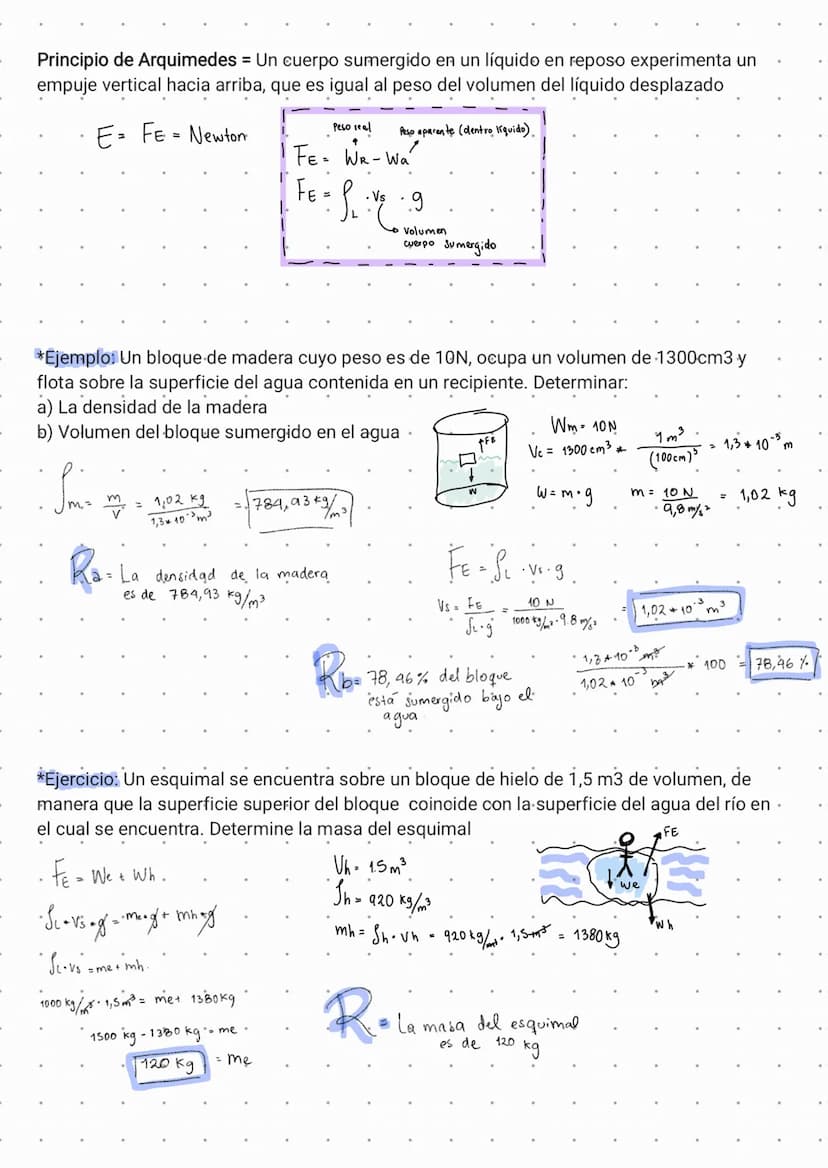 Principio de Arquimedes = Un cuerpo sumergido en un líquido en reposo experimenta un
empuje vertical hacia arriba, que es igual al peso del volumen del líquido desplazado
E = FE = Newton
Peso real
Peso aparente (dentro líquido)
FE = WR - Wa
FE = ρL · Vs · g
Volumen
cuerpo sumergido
*Ejemplo: Un bloque de madera cuyo peso es de 10N, ocupa un volumen de 1300cm3 y
flota sobre la superficie del agua contenida en un recipiente. Determinar:
a) La densidad de la madera
b) Volumen del bloque sumergido en el agua
↑FE
W
Wm = 10N
Vc = 1300 cm³ * 1 m³ / (100cm)³ = 1,3 * 10⁻³ m
W = m · g
m = 10 N / 9,8 m/s² = 1,02 kg
ρm = m / V = 1,02 kg / 1,3 * 10⁻³ m³ = 784,93 kg/m³
Ra = La densidad de la madera
es de 784,93 kg/m³
FE = ρL · Vs · g
Vs = FE / ρL · g = 10 N / 1000 kg/m³ · 9.8 m/s² = 1,02 * 10⁻³ m³
1,3 * 10⁻³ m³ / 1,02 * 10⁻³ m³ * 100 = 78,46 %
Rb = 78,46% del bloque
está sumergido bajo el
agua
*Ejercicio: Un esquimal se encuentra sobre un bloque de hielo de 1,5 m3 de volumen, de
manera que la superficie superior del bloque coincide con la superficie del agua del río en
el cual se encuentra. Determine la masa del esquimal
FE
We
Wh
FE = We + Wh
ρL * Vs * g = me * g + mh * g
ρL · Vs = me + mh
1000 kg/m³ · 1,5m³ = me + 1380kg
1500 kg - 1380 kg = me
120 kg = me
Vh = 1.5 m³
ρh = 920 kg/m³
mh = ρh · Vh = 920 kg/m³ · 1,5m³ = 1380kg
R = La masa del esquimal
es de 120 kg